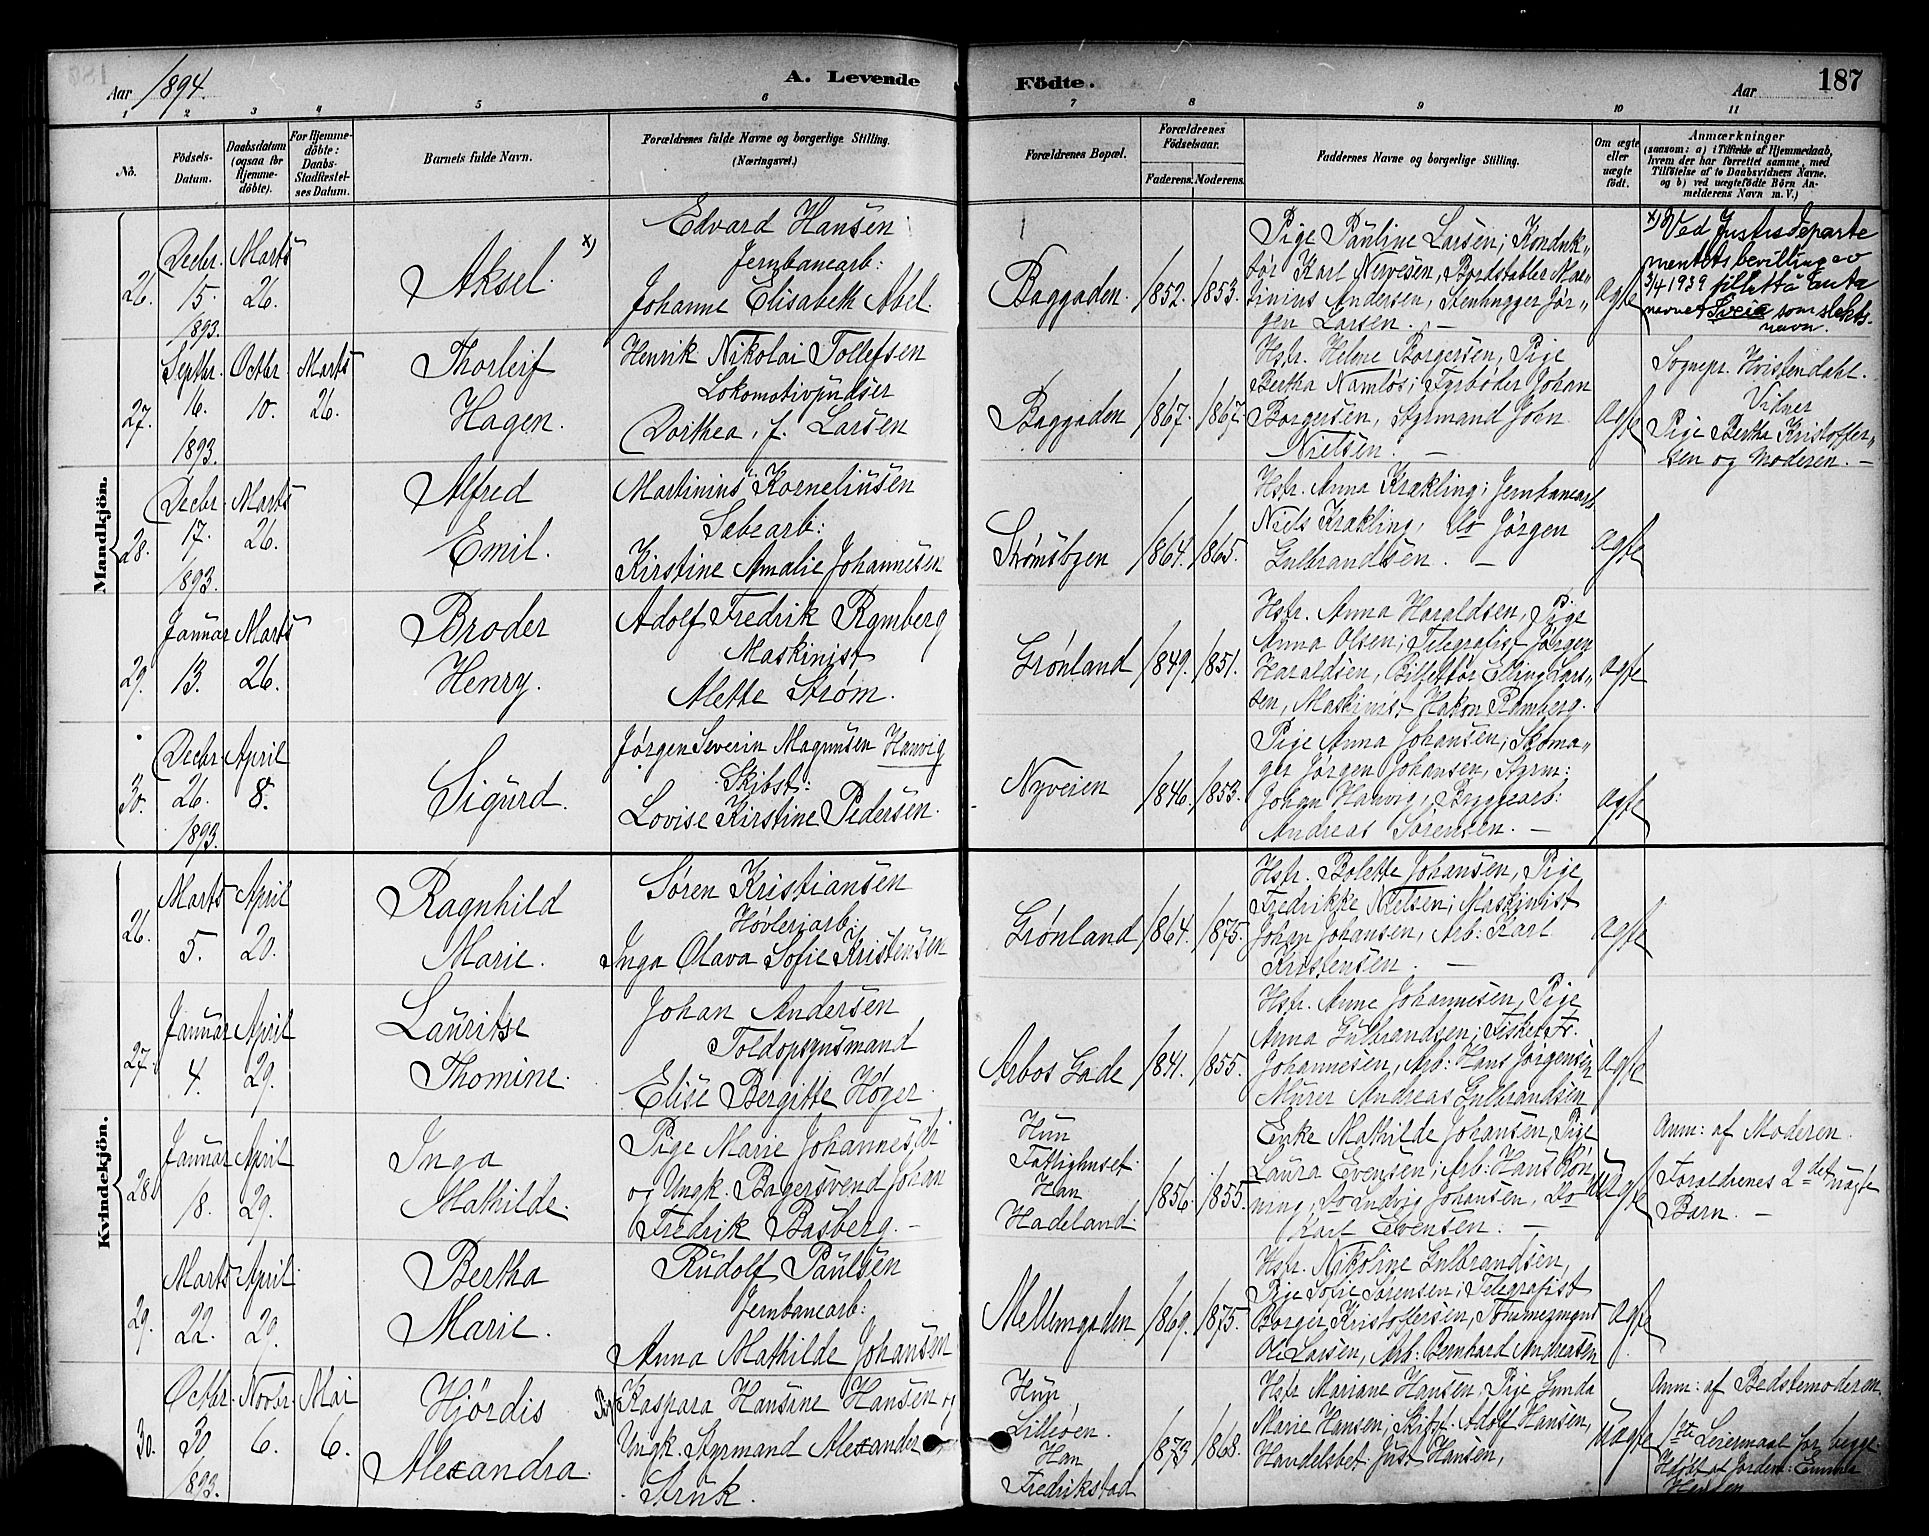 Aar 1894.
A. Levende
Födte.
Aar
187
1 2 3 4 5 6 7 8 9 10 11
No.
Födsels-
Datum.
Daabsdatum
(ogsaa for
Hjemme-
döbte).
For Hjemme-
döbte:
Daabs-
Stadfæstel-
ses Datum.
Barnets fulde Navn.
Forældrenes fulde Navne og borgerlige Stilling.
(Næringsvei.)
Forældrenes Bopæl.
Forældrenes
Födselsaar.
Faderens. Moderens.
Faddernes Navne og borgerlige Stilling.
Om ægte
eller
uægte
födt.
Anmærkninger
(saasom: a) i Tilfælde af Hjemmedaab,
hvem der har forrettet samme, med
Tilföielse af to Daabsvidners Navne,
og b) ved uægtefödte Börn An-
melderens Navn m. V.)
Mandkjön.
26.
Decbr.
15.
1893.
Marts
26.
Aksel. x)
Edvard Hansen
Jernbanearb:
Johanne Elisabeth Abel.
Baggaden.
1852. 1853.
Pige Pauline Larsen; Konduk-
tør Karl Nervesen, Bordstabler Mar-
tinius Andersen, Stenhugger Jør-
gen Larsen. —
ægte
x) Ved Justisdeparte
mentets bevilling av
3/4 1939 tillatt å anta
navnet Sveia som slekts-
navn.
27.
Septbr.
16.
1893.
Octbr
10.
Marts
26.
Thorleif
Hagen.
Henrik Nikolai Tollefsen
Lokomotivpudser
Dorthea, f. Larsen
Baggaden
1867. 1867.
Hstr. Helene Borgersen, Pige
Bertha Namløs; Fyrbøder Johan
Borgersen, Styrmand John
Nielsen. —
ægte
Sognepr. Hvistendahl.
Vidner
Pige Bertha Kristoffer-
sen og Moderen. —
28.
Decbr.
17.
1893.
Marts
26.
Alfred
Emil.
Martinius Korneliusen
Sabearb:
Kirstine Amalie Johannesen
Strømsbyen
1864. 1865.
Hstr. Anna Krækling; Jernbanearb
Niels Krækling, Do Jørgen
Gulbrandsen. —
ægte
29.
Januar
13.
Marts
26.
Broder
Henry.
Adolf Fredrik Ramberg
Maskinist
Alette Strøm.
Grønland
1849. 1851.
Hstr. Anna Haraldsen, Pige
Anna Olsen; Telegrafist Jørgen
Haraldsen, Billettør Elling Lars-
sen, Maskinist Hakon Ramberg.
ægte
30.
Decbr.
26.
1893.
April
8.
Sigurd.
Jørgen Severin Magnusen Hanvig
Skibst:
Lovise Kirstine Pedersen.
Nyveien
1846. 1853.
Pige Anna Johansen; Skoma-
ger Jørgen Johansen, Styrm:
Johan Hanvig, Bryggearb:
Andreas Sørensen. —
ægte
Kvindekjön.
26.
Marts
5.
April
20.
Ragnhild
Marie.
Søren Kristiansen
Høvleriarb:
Inga Olava Sofie Kristensen
Grønland
1864. 1875.
Hstr. Bolette Johansen, Pige
Fredrikke Nielsen; Maskinist
Johan Johansen, Arb: Karl
Kristensen. —
ægte
27.
Januar
4.
April
29.
Lauritse
Thomine.
Johan Andersen
Toldopsynsmand
Elise Bergitte Høger.
Arbos Gade
1841. 1855.
Hstr. Anne Johannesen, Pige
Anna Gulbrandsen; Fisker Fr.
Johannesen, Arb: Hans Jørgensen
Murer Andreas Gulbrandsen
ægte
28.
Januar
18.
April
29.
Inga
Mathilde.
Pige Marie Johannesdr
og Ungk. Bagersvend Johan
Fredrik Basberg. —
Hun
Fattighuset.
Han
Hadeland.
1856. 1855.
Enke Mathilde Johansen, Pige
Laura Evensen; Arb: Hans Røn-
ning, Do Ludvig Johansen, Do
Karl Evensen. —
uægte
Anm: af Moderen.
Forældrenes 2det uægte
Barn. —
29.
Marts
22.
April
29.
Bertha
Marie.
Rudolf Paulsen
Jernbanearb:
Anna Mathilde Johansen
Mellemgaden
1869. 1875.
Hstr. Nikoline Gulbrandsen,
Pige Sofie Sørensen; Telegrafist
Borger Kristoffersen, Tømmermand
Ole Larsen, Arb: Bernhard Andersen
ægte
30.
Octbr.
30
1893.
Novbr.
6.
Mai
6.
Hjördis
Alexandra.
Pige Kaspara Hansine Hansen og
Ungk. Styrmand Alexander
Struk.
Hun
Lilleøen.
Han
Fredrikstad
1873 1868.
Hstr Mariane Hansen, Pige Gunda
Marie Hansen; Skibst. Adolf Hansen,
Handelsbet. Just Hansen,
uægte
Anm: af Bedstemoderen,
1ste Leiermaal for begge.
Hdøbt af Jordem: Emma